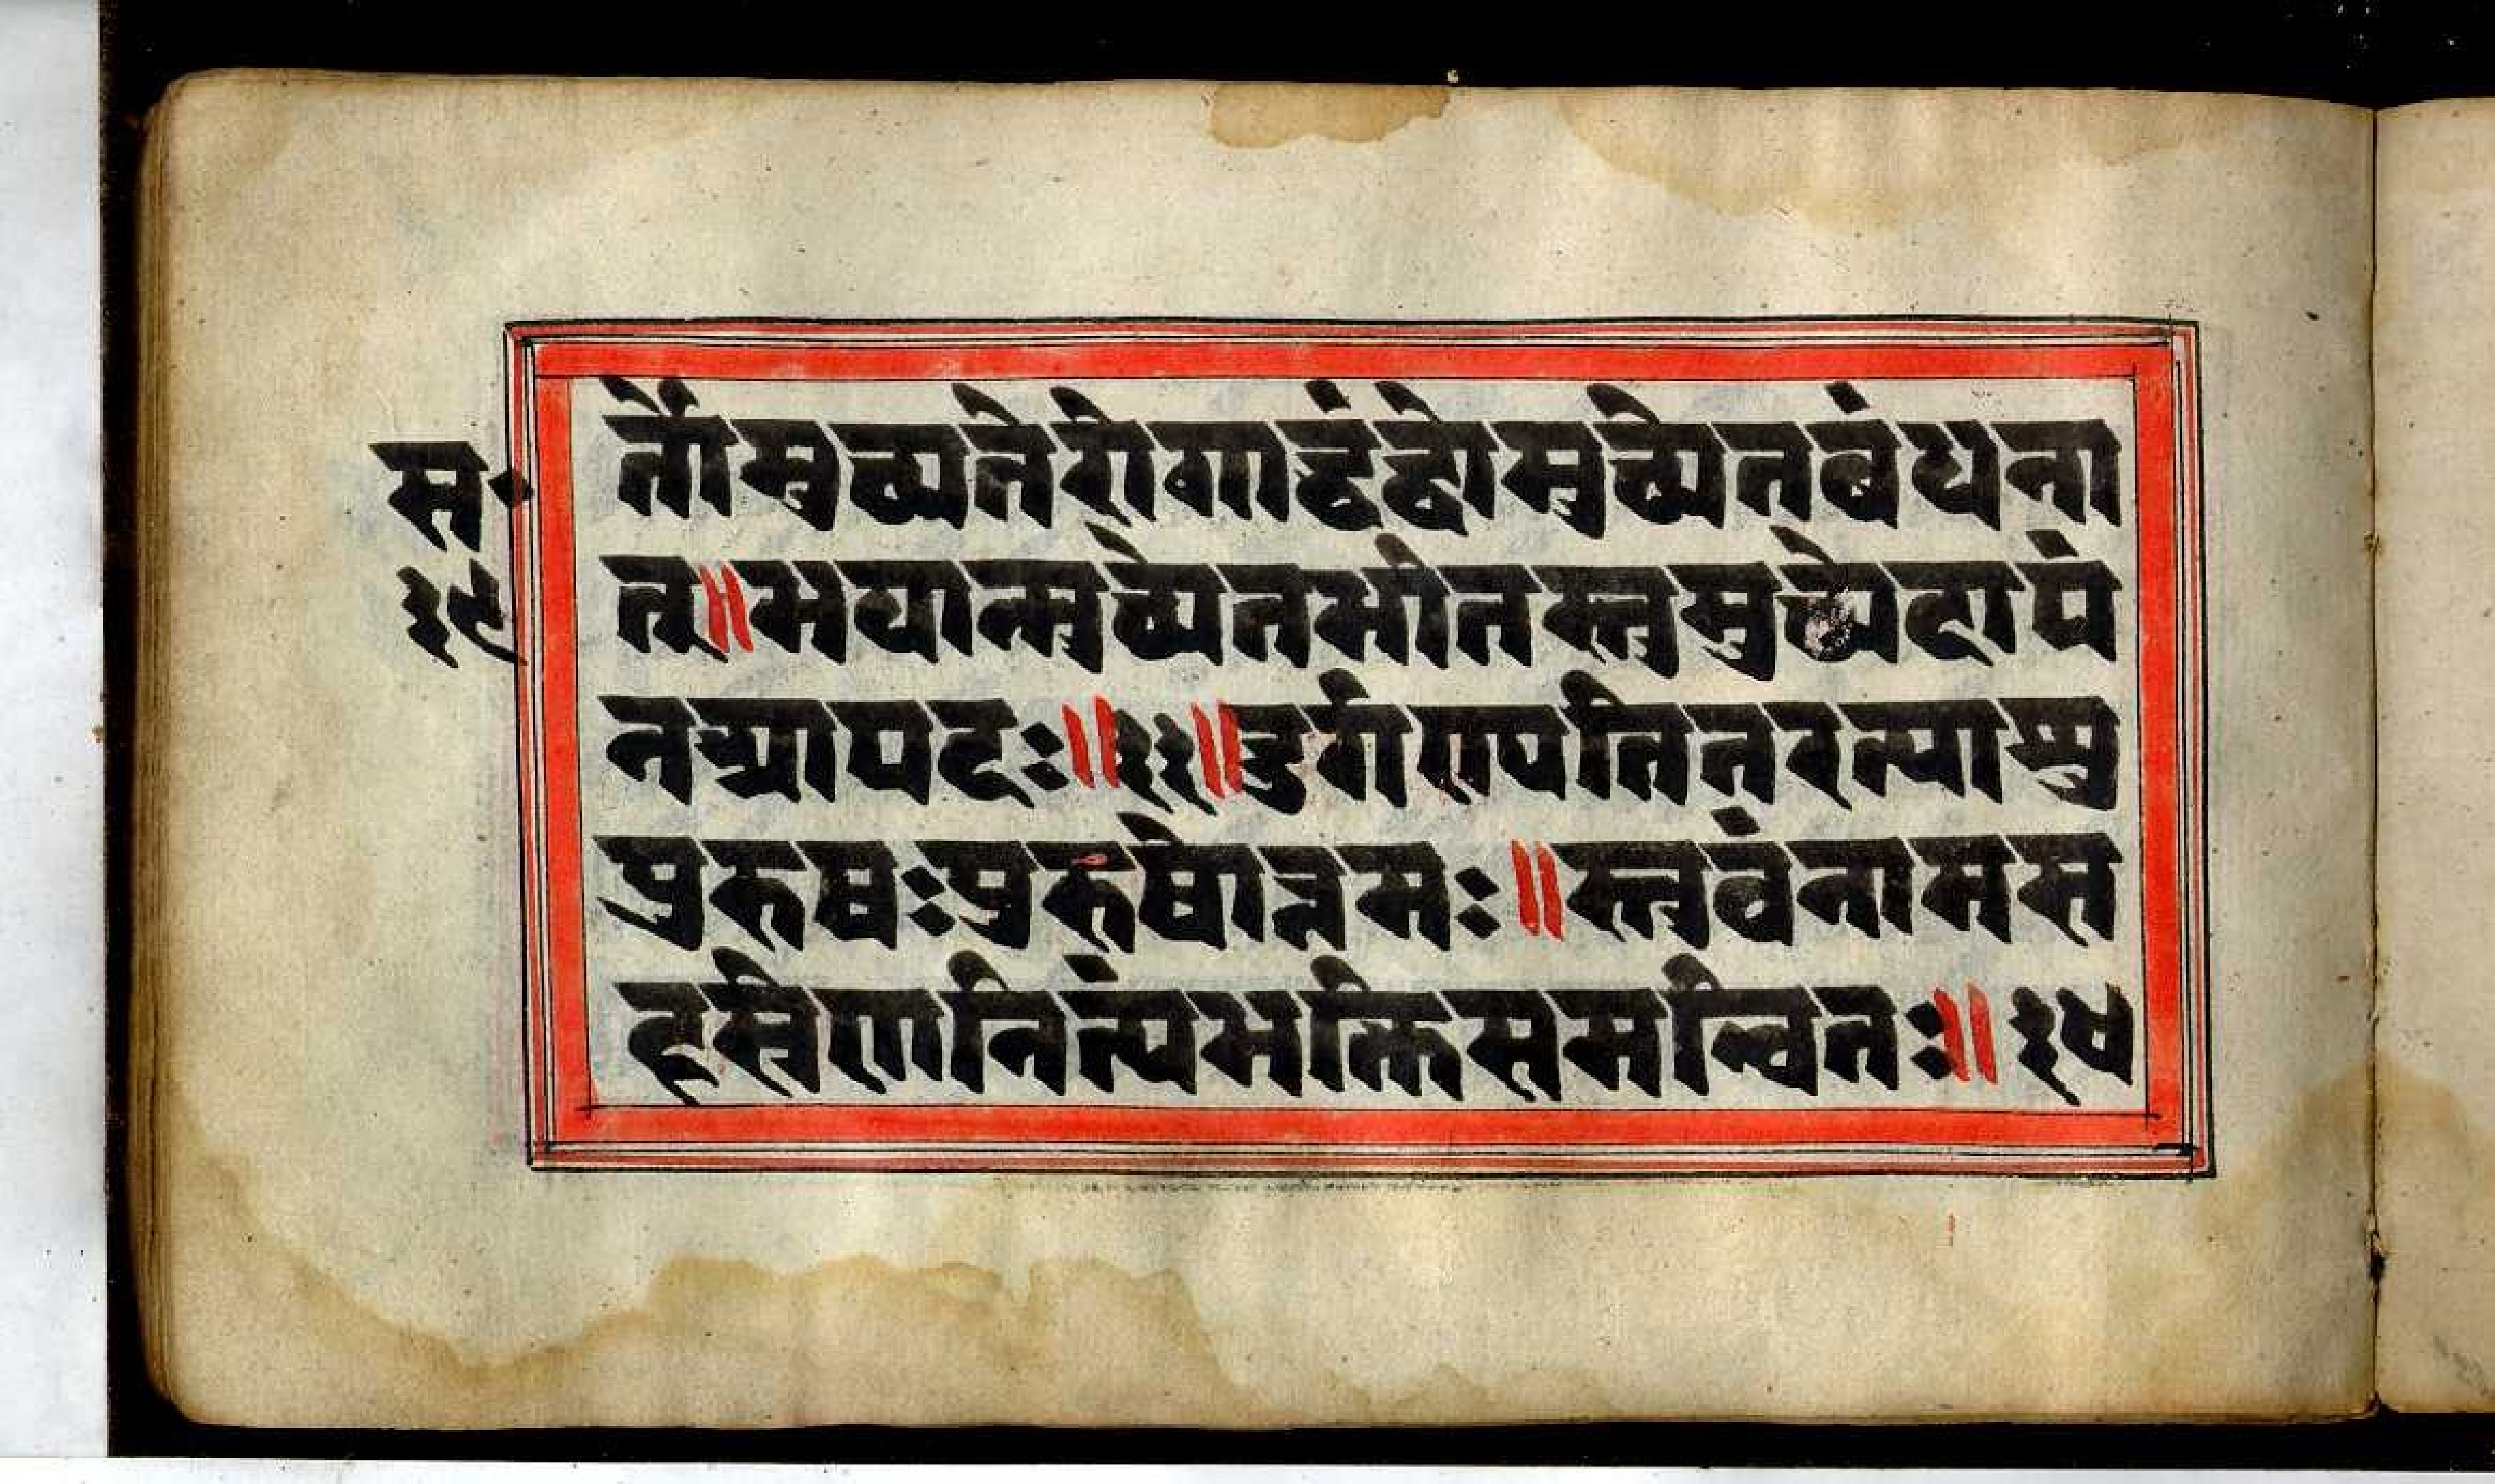 स॰
१९
र्तोमुच्यतेरोगाद्बंद्धोमुच्येतबंधना
त्॥भयान्मुच्येतभीतस्तुमुच्येदापं
नआपदः॥११॥दुर्गाण्यतितरत्याशु
पुरुषःपुरुषोत्तमः॥स्तुवंनामस
हस्रेणनित्यंभक्तिसमन्वितः॥१२